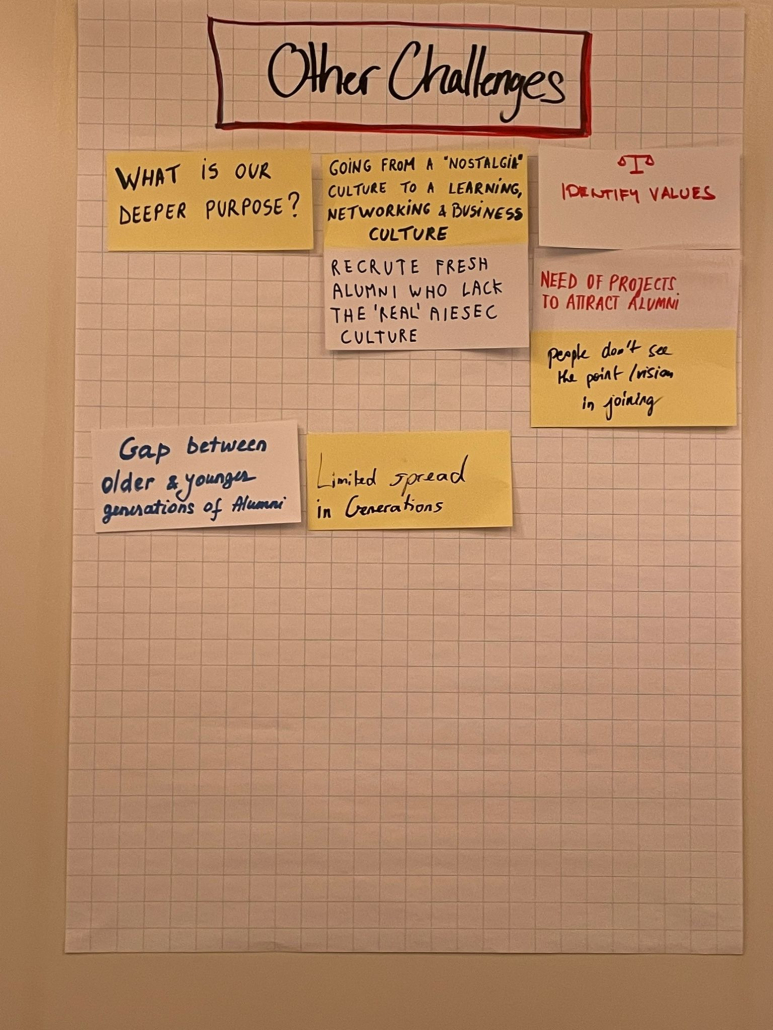 Other Challenges
WHAT IS OUR
DEEPER PURPOSE?
GOING FROM A "NOSTALGIK"
CULTURE TO A LEARNING,
NETWORKING & BUSINESS
CULTURE
RECRUTE FRESH
ALUMNI WHO LACK
THE 'REAL' AIESEC
CULTURE
IDENTIFY VALUES
NEED OF PROJECTS
TO ATTRACT ALUMNI
people don't see
the point / vision
in joining
Gap between
older & younger
generations of Alumni
Limited spread
in Generations